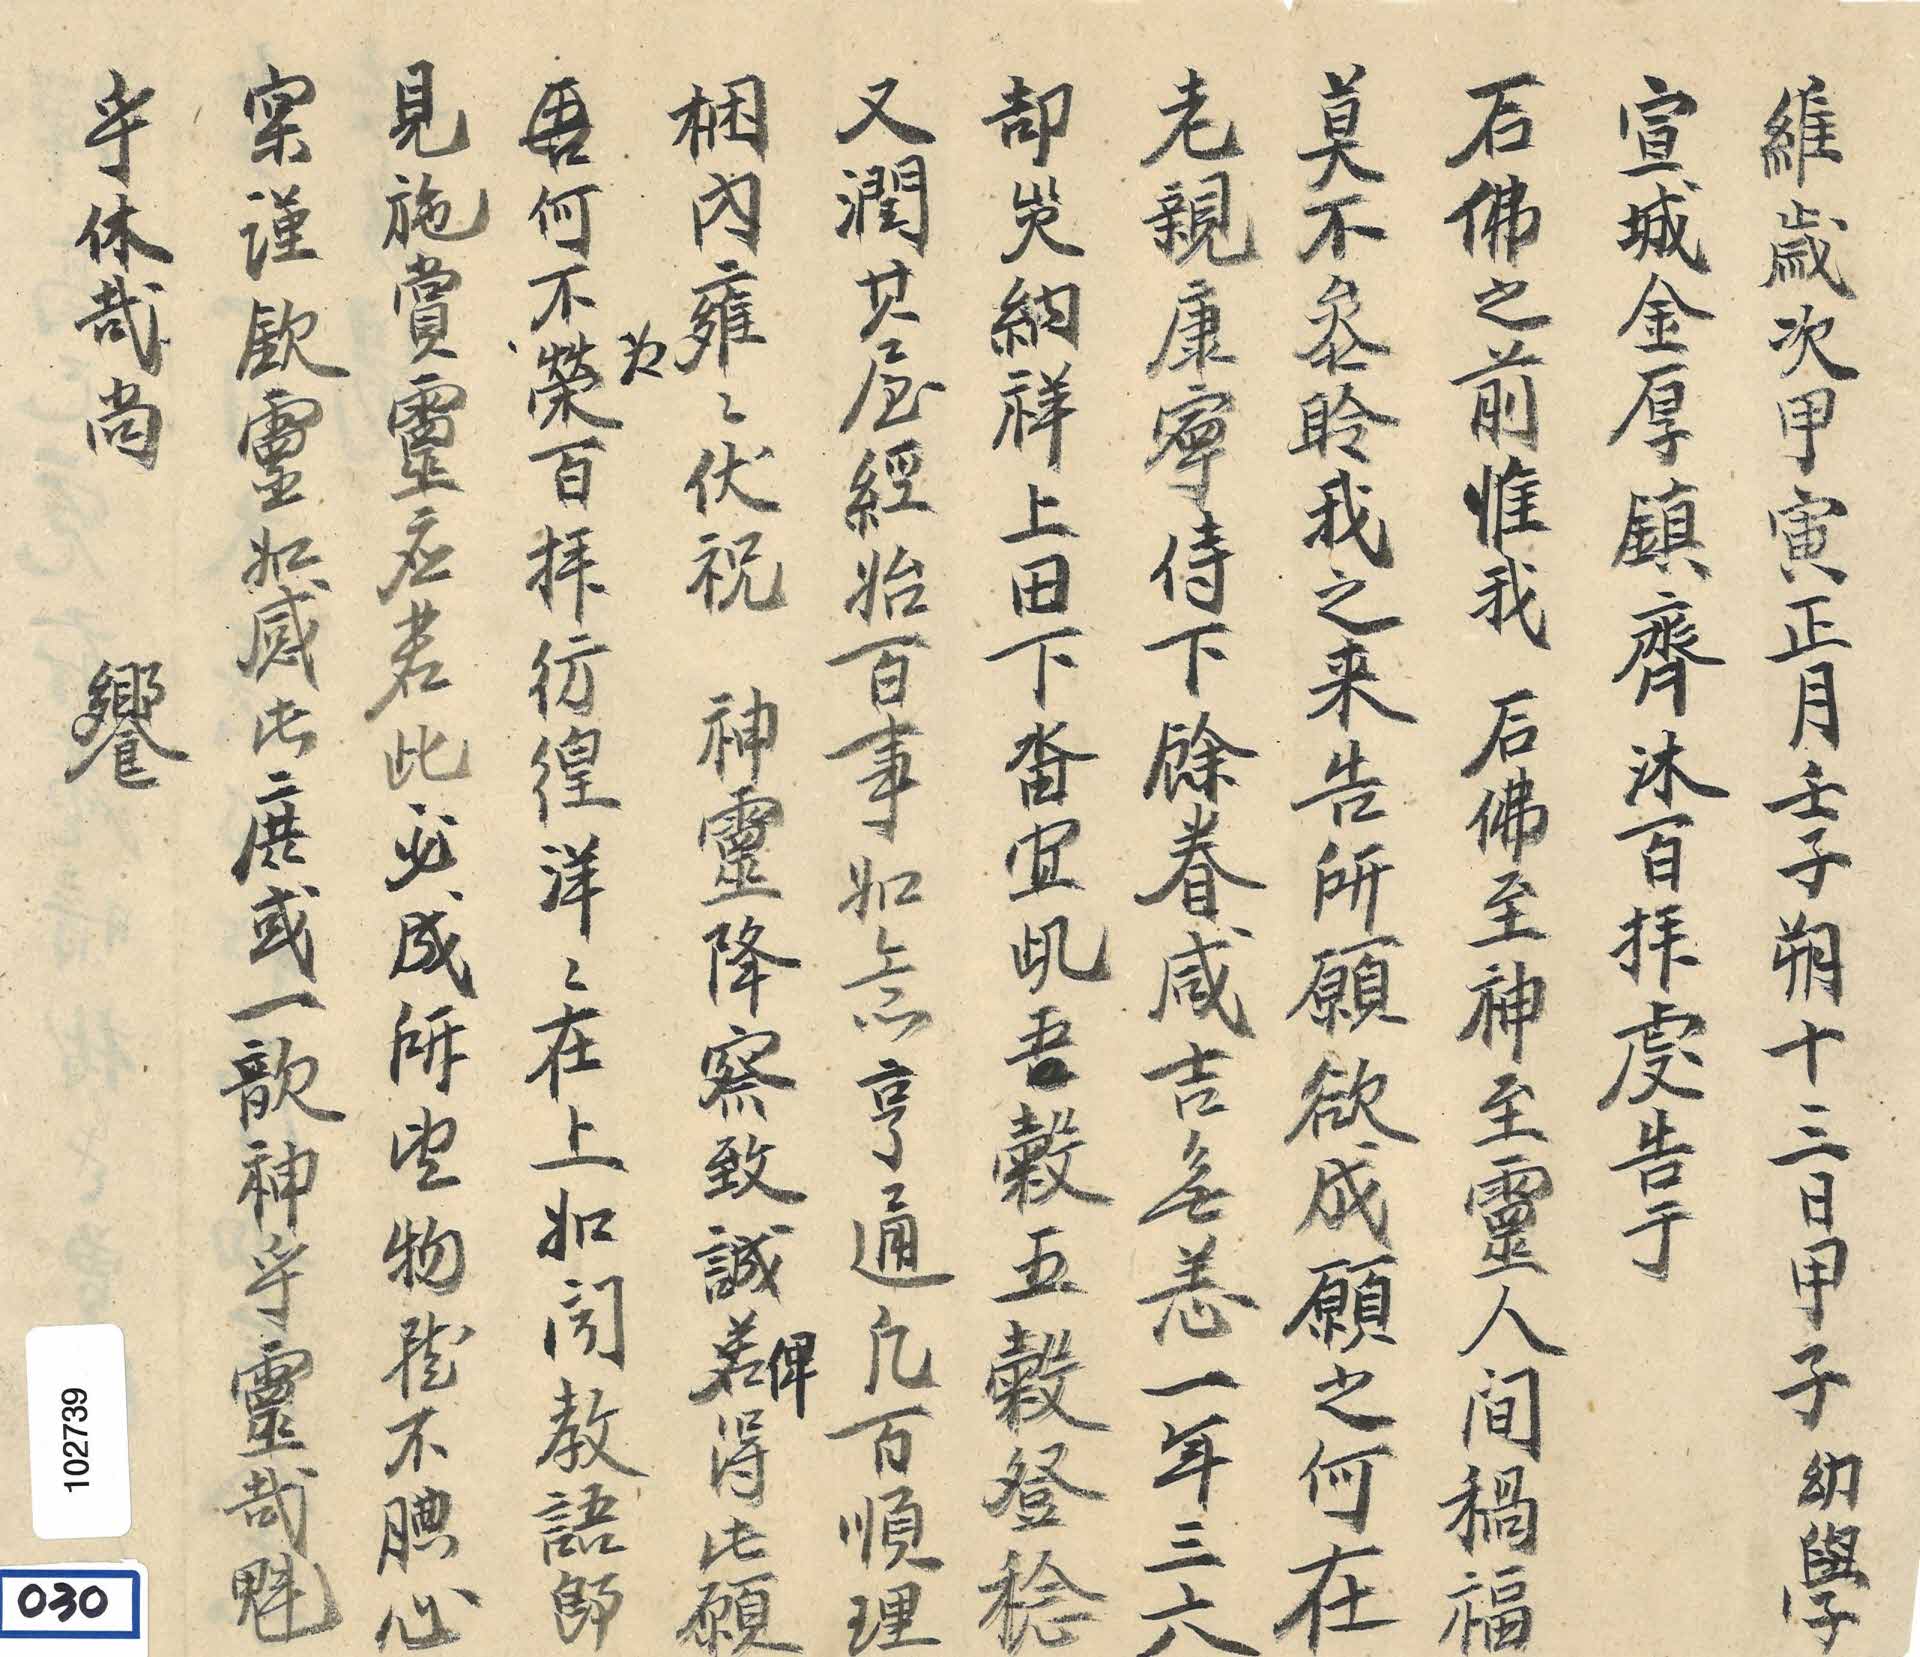 維歲次甲寅正月壬子朔十三日甲子幼學
宣城金厚鎮齊沐百拜虔告于
石佛之前惟我 石佛至神至靈人間禍福
莫不叅聆我之来告所願欲成願之何在
老親康寧侍下餘眷咸吉無恙一年三六
却灾納祥上田下畓宜吾穀五穀登稔
又潤其屋經始百事如意亨通凡百順理
梱內雍〻伏祝 神靈降察致誠若俾得此願
吾何不為榮百拜彷徨洋〻在上如聞教語師
見施賞靈応若此必成所望物雖不腆心
寀謹歆靈如感此庶或一歆神乎靈哉魁
乎休哉尚 饗
102739
030